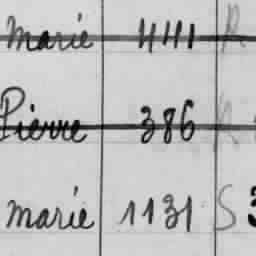 Marie 1141 R
Pierre 386 R
Marie 1131 S 3